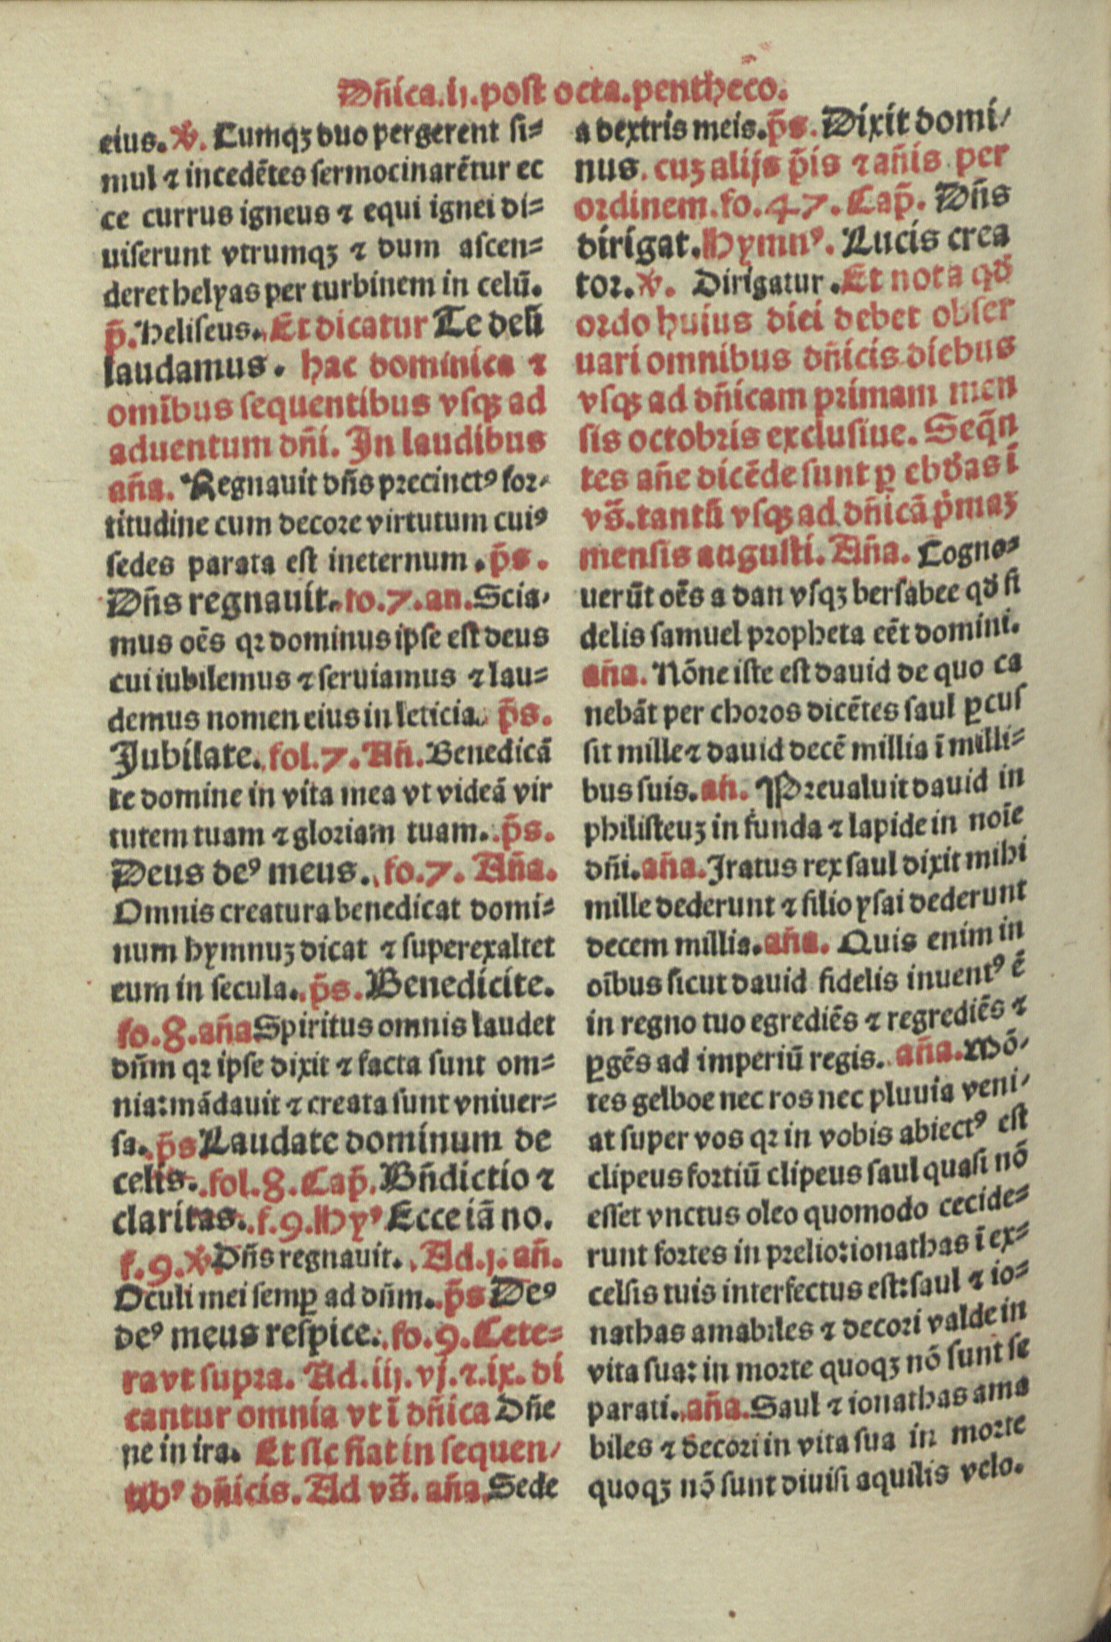 Dñica.ij.post octa.pentheco.
eius.℣. Cumqꝫ duo pergerent si=
mul ⁊ incedẽtes sermocinarẽtur ec
ce currus igneus ⁊ equi ignei di=
uiserunt vtrumqꝫ ⁊ dum ascen=
deret helyas per turbinem in celũ.
p̃. Heliseus. Et dicatur Te deũ
laudamus. hac dominica ⁊
omĩbus sequentibus vsqꝫ ad
aduentum dñi. In laudibus
aña. Regnauit dñs precinctꝰ for-
titudine cum decore virtutum cuiꝰ
sedes parata est ineternum. p̃s.
Dñs regnauit. fo.7. an. Scia-
mus oẽs qꝛ dominus ipse est deus
cui iubilemus ⁊ seruiamus ⁊ lau=
demus nomen eius in leticia. p̃s.
Jubilate. fol.7. Añ. Benedicã
te domine in vita mea vt videã vir
tutem tuam ⁊ gloriam tuam. p̃s.
Deus deꝰ meus. fo.7. Aña.
Omnis creatura benedicat domi=
num hymnuꝫ dicat ⁊ superexaltet
eum in secula. p̃s. Benedicite.
fo.8. aña Spiritus omnis laudet
dñm qꝛ ipse dixit ⁊ facta sunt om=
nia: mãdauit ⁊ creata sunt vniuer=
sa. p̃s Laudate dominum de
celis. fol.8. Cap̃. Bñdictio ⁊
claritas. f.9. Hyꝰ Ecce iã no.
f.9. ℣. Dñs regnauit. Ad.j. añ.
Oculi mei semꝑ ad dñm. p̃s Deꝰ
deꝰ meus respice. fo.9. Cete=
ra vt supra. Ad.iij.vj.⁊.ix. di
cantur omnia vt ĩ dñica Dñe
ne in ira. Et sic fiat in sequen/
tibꝰ dñicis. Ad vs̃. aña. Sede
a dextris meis. p̃s. Dixit domi/
nus. cuꝫ alijs p̃is ⁊ añis per
ordinem. fo.47. Cap̃. Dñs
dirigat. Hymnꝰ. Lucis crea
tor. ℣. Dirigatur. Et nota qď
ordo huius diei debet obser
uari omnibus dñicis diebus
vsqꝫ ad dñicam primam men
sis octobris exclusiue. Seq̃n
tes añe dicẽde sunt ꝑ ebďas ĩ
vs̃. tantũ vsqꝫ ad dñicã p̃maꝫ
mensis augusti. Aña. Cogno=
uerũt oẽs a dan vsqꝫ bersabee qď fi
delis samuel propheta eẽt domini.
aña. Nõne iste est dauid de quo ca
nebãt per choros dicẽtes saul ꝑcus
sit mille ⁊ dauid decẽ millia ĩ milli=
bus suis. añ. Preualuit dauid in
philisteuꝫ in funda ⁊ lapide in noĩe
dñi. aña. Iratus rex saul dixit mihi
mille dederunt ⁊ filio ysai dederunt
decem millia. aña. Quis enim in
oĩbus sicut dauid fidelis inuentꝰ ẽ
in regno tuo egrediẽs ⁊ regrediẽs ⁊
ꝑgẽs ad imperiũ regis. aña. Mõ-
tes gelboe nec ros nec pluuia veni/
at super vos qꝛ in vobis abiectꝰ est
clipeus fortiũ clipeus saul quasi nõ
esset vnctus oleo quomodo cecide=
runt fortes in prelio: ionathas ĩ ex=
celsis tuis interfectus est: saul ⁊ io=
nathas amabiles ⁊ decori valde in
vita sua: in morte quoqꝫ nõ sunt se
parati. aña. Saul ⁊ ionathas ama
biles ⁊ decori in vita sua in morte
quoqꝫ nõ sunt diuisi aquilis velo.